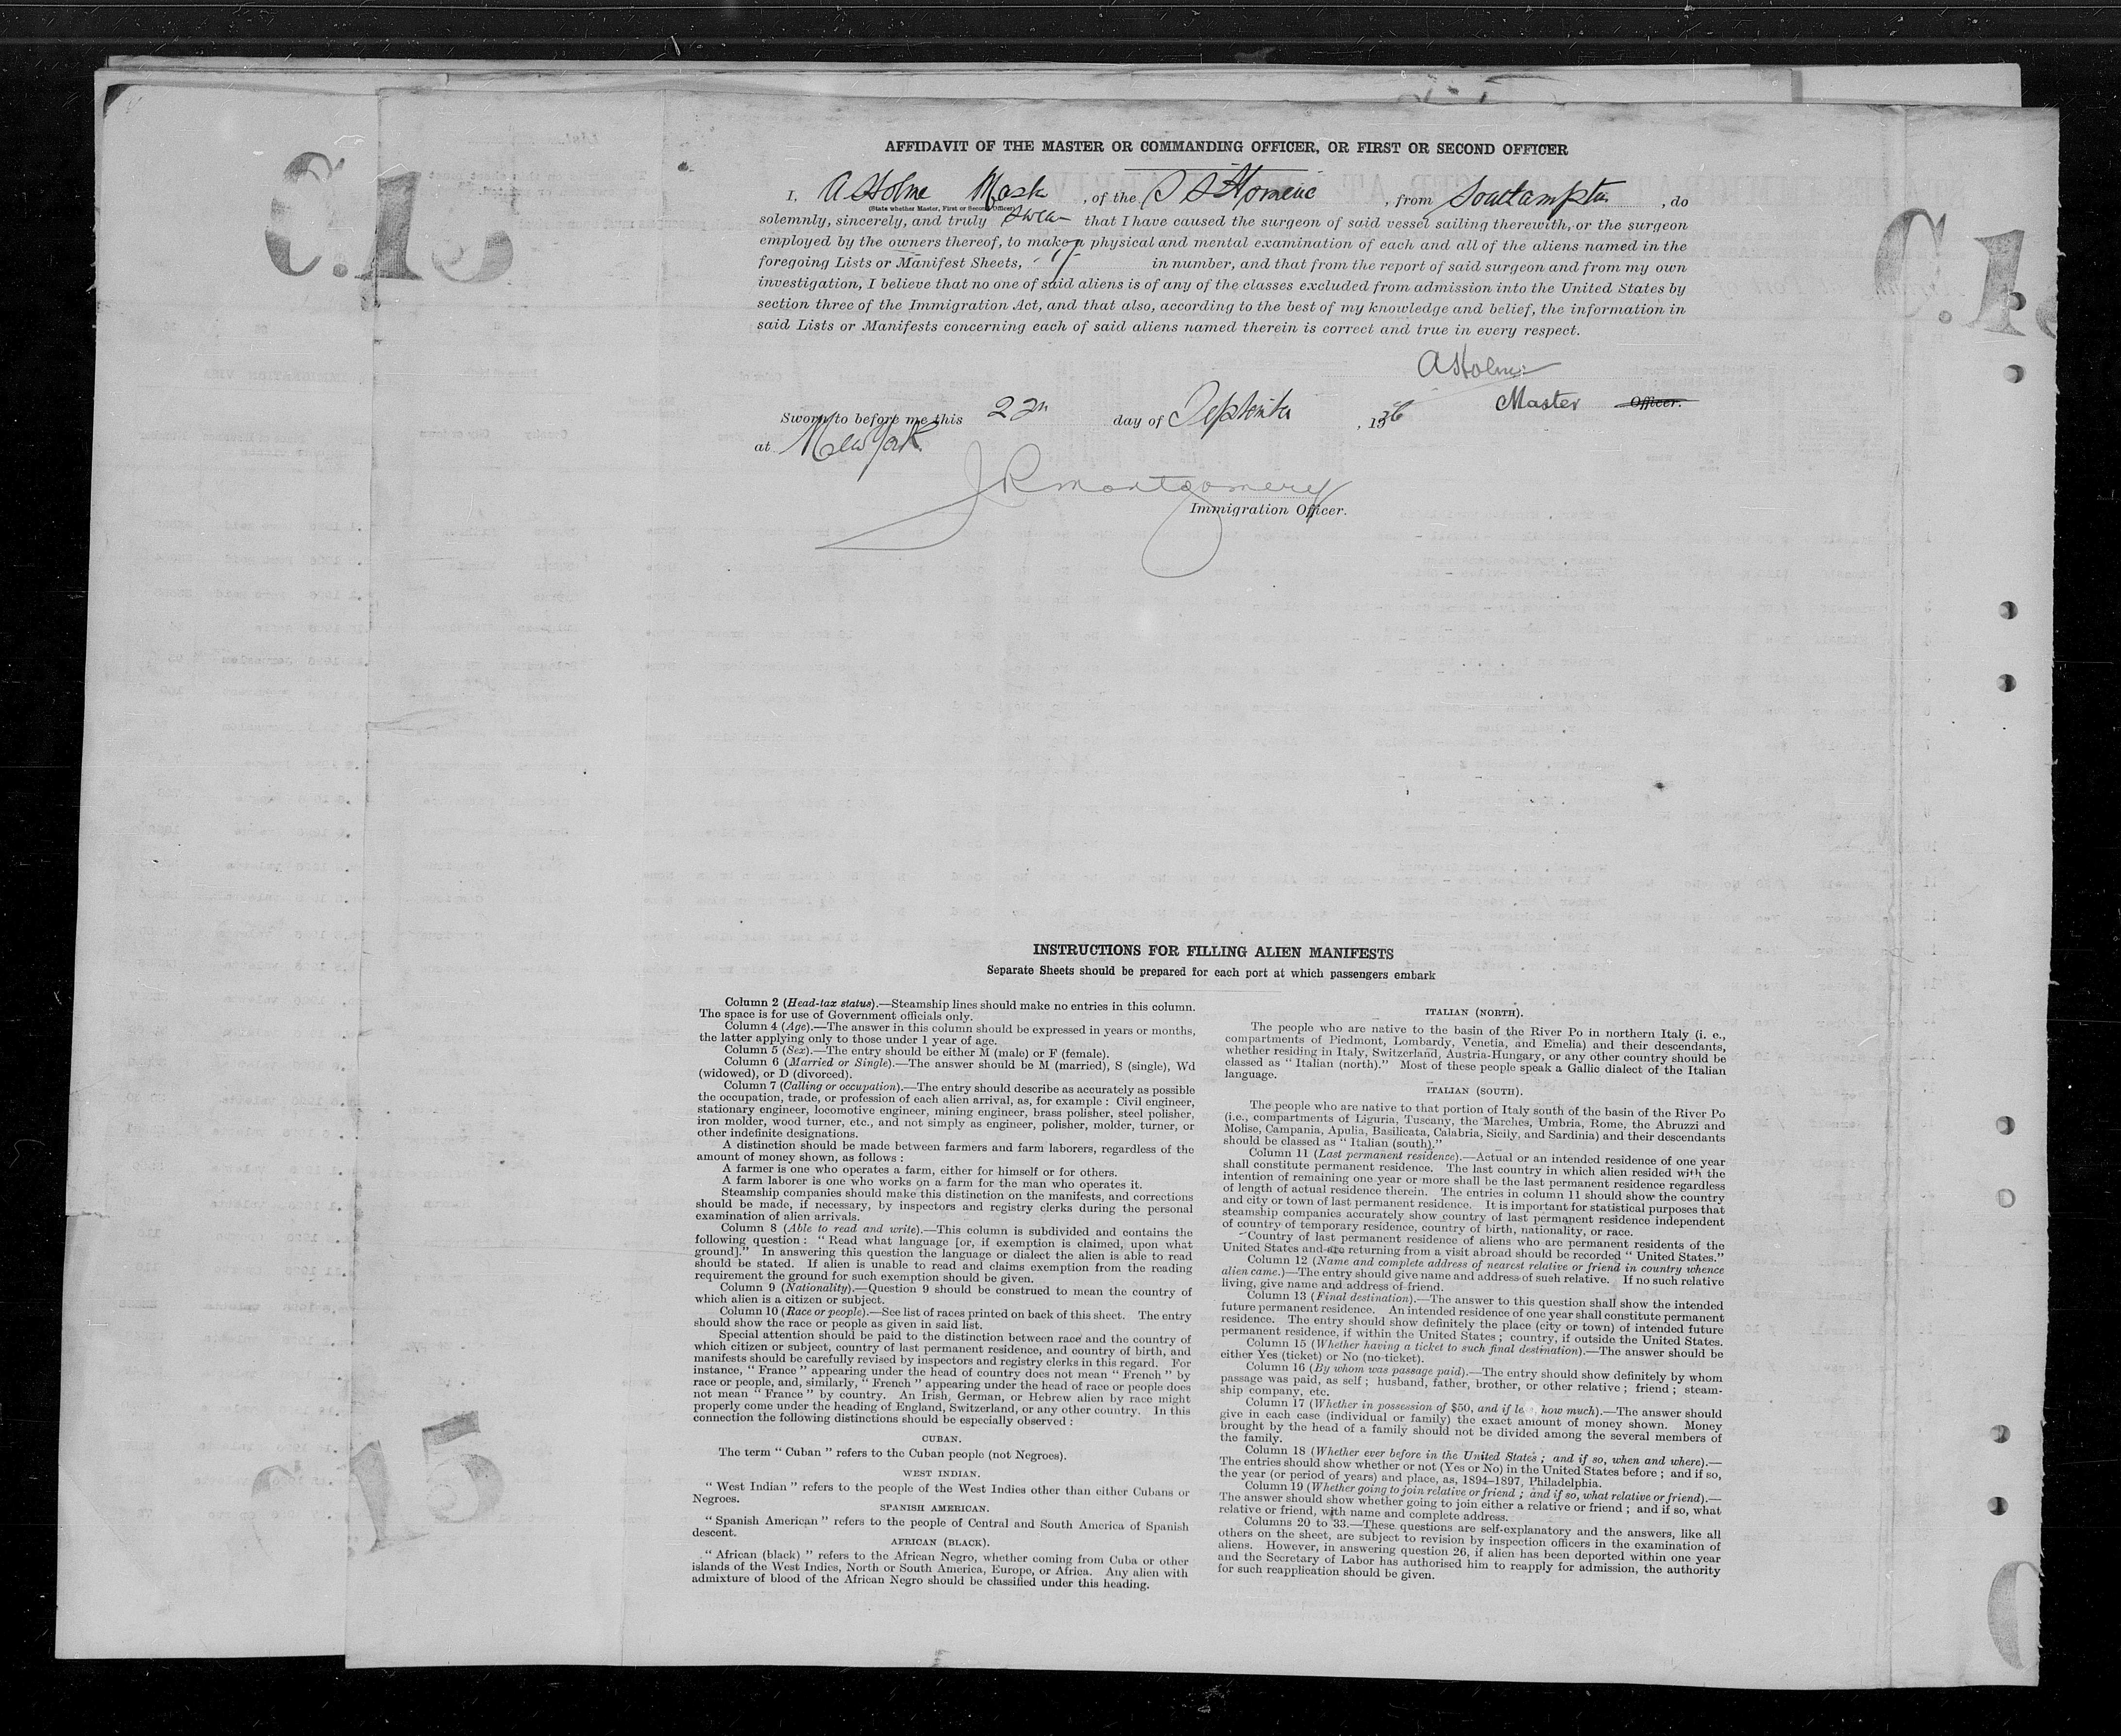 C.15
C.15
AFFIDAVIT OF THE MASTER OR COMMANDING OFFICER, OR FIRST OR SECOND OFFICER
I, A Holme Master, of the S S Homeric, from Southampton, do
(State whether Master, First or Second Officer)
solemnly, sincerely, and truly swear that I have caused the surgeon of said vessel sailing therewith, or the surgeon
employed by the owners thereof, to make a physical and mental examination of each and all of the aliens named in the
foregoing Lists or Manifest Sheets, in number, and that from the report of said surgeon and from my own
investigation, I believe that no one of said aliens is of any of the classes excluded from admission into the United States by
section three of the Immigration Act, and that also, according to the best of my knowledge and belief, the information in
said Lists or Manifests concerning each of said aliens named therein is correct and true in every respect.
A Holme
Master Officer.
Sworn to before me this 22 day of September, 19
at New York
J R Montgomery
Immigration Officer.
INSTRUCTIONS FOR FILLING ALIEN MANIFESTS
Separate Sheets should be prepared for each port at which passengers embark
Column 2 (Head-tax status).—Steamship lines should make no entries in this column.
The space is for use of Government officials only.
Column 4 (Age).—The answer in this column should be expressed in years or months,
the latter applying only to those under 1 year of age.
Column 5 (Sex).—The entry should be either M (male) or F (female).
Column 6 (Married or Single).—The answer should be M (married), S (single), Wd
(widowed), or D (divorced).
Column 7 (Calling or occupation).—The entry should describe as accurately as possible
the occupation, trade, or profession of each alien arrival, as, for example : Civil engineer,
stationary engineer, locomotive engineer, mining engineer, brass polisher, steel polisher,
iron molder, wood turner, etc., and not simply as engineer, polisher, molder, turner, or
other indefinite designations.
A distinction should be made between farmers and farm laborers, regardless of the
amount of money shown, as follows :
A farmer is one who operates a farm, either for himself or for others.
A farm laborer is one who works on a farm for the man who operates it.
Steamship companies should make this distinction on the manifests, and corrections
should be made, if necessary, by inspectors and registry clerks during the personal
examination of alien arrivals.
Column 8 (Able to read and write).—This column is subdivided and contains the
following question : “ Read what language [or, if exemption is claimed, upon what
ground].” In answering this question the language or dialect the alien is able to read
should be stated. If alien is unable to read and claims exemption from the reading
requirement the ground for such exemption should be given.
Column 9 (Nationality).—Question 9 should be construed to mean the country of
which alien is a citizen or subject.
Column 10 (Race or people).—See list of races printed on back of this sheet. The entry
should show the race or people as given in said list.
Special attention should be paid to the distinction between race and the country of
which citizen or subject, country of last permanent residence, and country of birth, and
manifests should be carefully revised by inspectors and registry clerks in this regard. For
instance, “ France ” appearing under the head of country does not mean “ French ” by
race or people, and, similarly, “ French ” appearing under the head of race or people does
not mean “ France ” by country. An Irish, German, or Hebrew alien by race might
properly come under the heading of England, Switzerland, or any other country. In this
connection the following distinctions should be especially observed :
CUBAN.
The term “ Cuban ” refers to the Cuban people (not Negroes).
WEST INDIAN.
“ West Indian ” refers to the people of the West Indies other than either Cubans or
Negroes.
SPANISH AMERICAN.
“ Spanish American ” refers to the people of Central and South America of Spanish
descent.
AFRICAN (BLACK).
“ African (black) ” refers to the African Negro, whether coming from Cuba or other
islands of the West Indies, North or South America, Europe, or Africa. Any alien with
admixture of blood of the African Negro should be classified under this heading.
ITALIAN (NORTH).
The people who are native to the basin of the River Po in northern Italy (i. e.,
compartments of Piedmont, Lombardy, Venetia, and Emelia) and their descendants,
whether residing in Italy, Switzerland, Austria-Hungary, or any other country should be
classed as “ Italian (north).” Most of these people speak a Gallic dialect of the Italian
language.
ITALIAN (SOUTH).
The people who are native to that portion of Italy south of the basin of the River Po
(i.e., compartments of Liguria, Tuscany, the Marches, Umbria, Rome, the Abruzzi and
Molise, Campania, Apulia, Basilicata, Calabria, Sicily, and Sardinia) and their descendants
should be classed as “ Italian (south).”
Column 11 (Last permanent residence).—Actual or an intended residence of one year
shall constitute permanent residence. The last country in which alien resided with the
intention of remaining one year or more shall be the last permanent residence regardless
of length of actual residence therein. The entries in column 11 should show the country
and city or town of last permanent residence. It is important for statistical purposes that
steamship companies accurately show country of last permanent residence independent
of country of temporary residence, country of birth, nationality, or race.
Country of last permanent residence of aliens who are permanent residents of the
United States and are returning from a visit abroad should be recorded “ United States.”
Column 12 (Name and complete address of nearest relative or friend in country whence
alien came.)—The entry should give name and address of such relative. If no such relative
living, give name and address of friend.
Column 13 (Final destination).—The answer to this question shall show the intended
future permanent residence. An intended residence of one year shall constitute permanent
residence. The entry should show definitely the place (city or town) of intended future
permanent residence, if within the United States ; country, if outside the United States.
Column 15 (Whether having a ticket to such final destination).—The answer should be
either Yes (ticket) or No (no ticket).
Column 16 (By whom was passage paid).—The entry should show definitely by whom
passage was paid, as self ; husband, father, brother, or other relative ; friend ; steam-
ship company, etc.
Column 17 (Whether in possession of $50, and if less, how much).—The answer should
give in each case (individual or family) the exact amount of money shown. Money
brought by the head of a family should not be divided among the several members of
the family.
Column 18 (Whether ever before in the United States ; and if so, when and where).—
The entries should show whether or not (Yes or No) in the United States before ; and if so,
the year (or period of years) and place, as, 1894–1897, Philadelphia.
Column 19 (Whether going to join relative or friend ; and if so, what relative or friend).—
The answer should show whether going to join either a relative or friend ; and if so, what
relative or friend, with name and complete address.
Columns 20 to 33.—These questions are self-explanatory and the answers, like all
others on the sheet, are subject to revision by inspection officers in the examination of
aliens. However, in answering question 26, if alien has been deported within one year
and the Secretary of Labor has authorised him to reapply for admission, the authority
for such reapplication should be given.
C.15